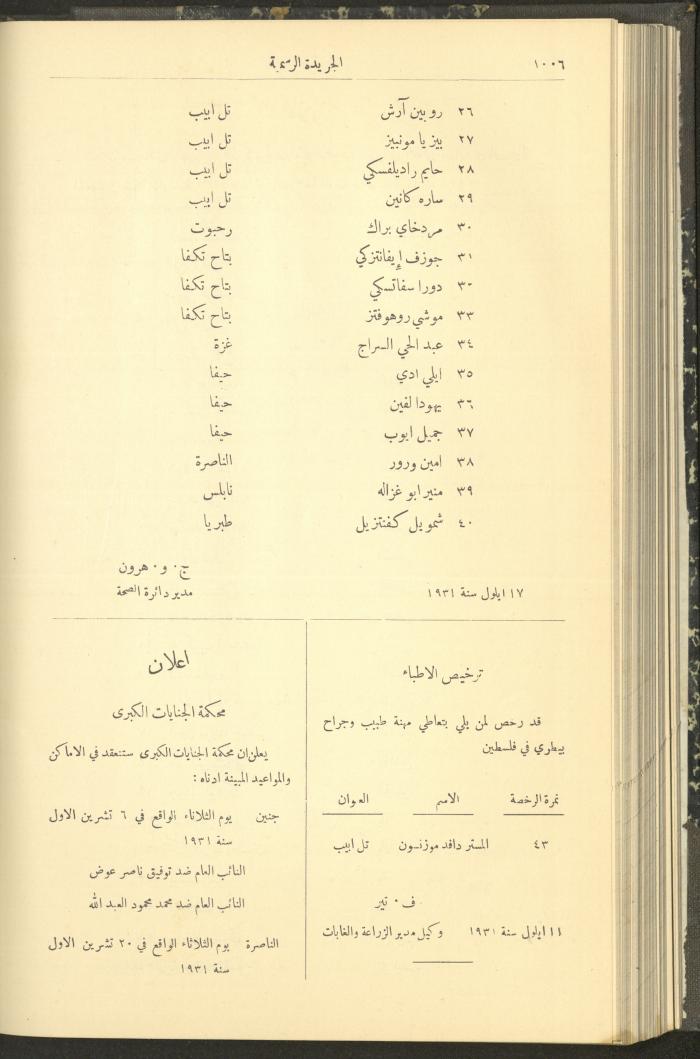 ١٠٠٦ الجريدة الرسمية
٢٦ روبين آرش تل ابيب
٢٧ بيزيا مونبيز تل ابيب
٢٨ حايم راديلفسكي تل ابيب
٢٩ ساره كانين تل ابيب
٣٠ مردخاي براك رحبوت
٣١ جوزف إيفانتزكي بتاح تكفا
٣٢ دورا سفاتسكي بتاح تكفا
٣٣ موشي روهوفتز بتاح تكفا
٣٤ عبد الحي السراج غزة
٣٥ ايلي ادي حيفا
٣٦ يهودا لفين حيفا
٣٧ جميل ايوب حيفا
٣٨ امين ورور الناصرة
٣٩ منير ابو غزاله نابلس
٤٠ شمويل كفنتزيل طبريا
ج. و. هرون
١٧ ايلول سنة ١٩٣١ مدير دائرة الصحة
ترخيص الاطباء
قد رخص لمن يلي بتعاطي مهنة طبيب وجراح
بيطري في فلسطين
نمرة الرخصة الاسم العنوان
٤٣ المستر دافد موزنسون تل ابيب
ف. تير
١١ ايلول سنة ١٩٣١ وكيل مدير الزراعة والغابات
اعلان
محكمة الجنايات الكبرى
يعلن ان محكمة الجنايات الكبرى ستنعقد في الاماكن
والمواعيد المبينة ادناه :
جنين يوم الثلاثاء الواقع في ٦ تشرين الاول
سنة ١٩٣١
النائب العام ضد توفيق ناصر عوض
النائب العام ضد محمد محمود العبد الله
الناصرة يوم الثلاثاء الواقع في ٢٠ تشرين الاول
سنة ١٩٣١